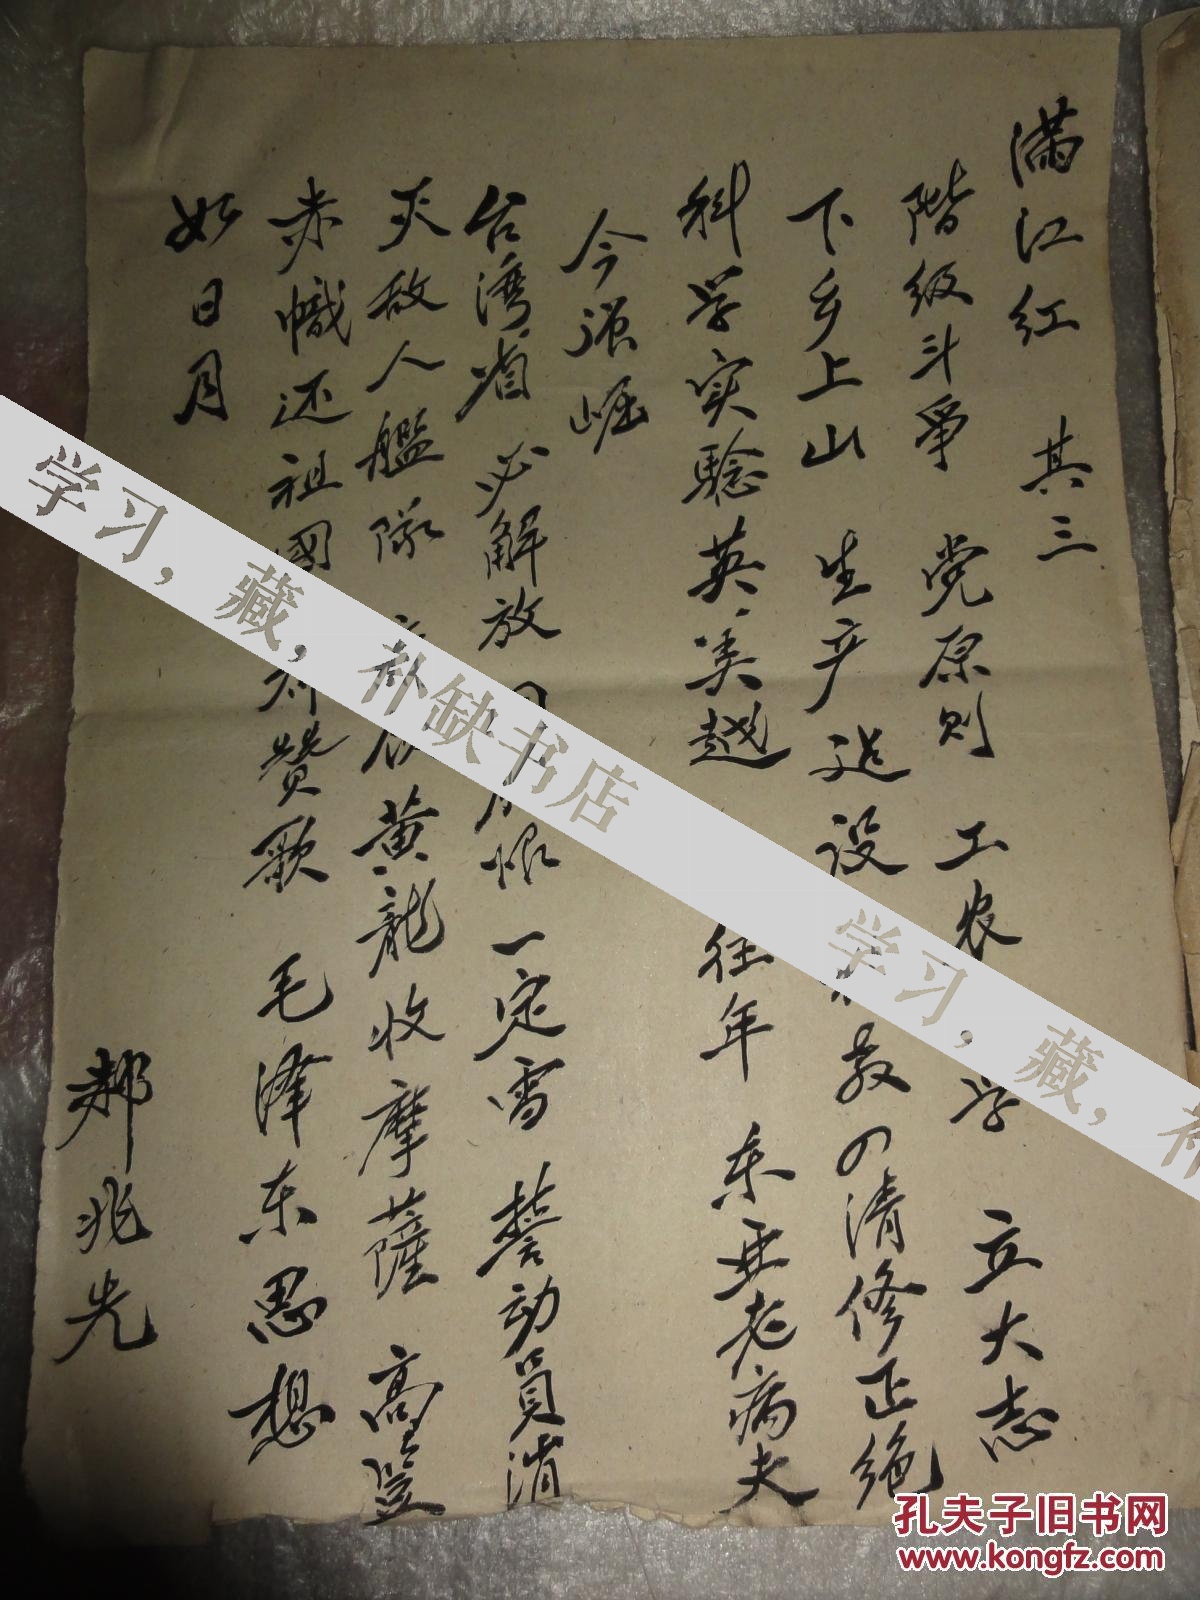 满江红 其三
階级斗爭 党原则 工农学 立大志
下乡上山 生产建设 教四清修正绝
科学实验英英越 往年 东亚老病夫
今强崛
台湾省 必解放 恨 一定雪 誓动员消
灭敌人艦隊 黄龍收摩薩 高竖
赤幟还祖國 赞歌 毛泽东思想
如日月
郝兆先
学习，藏，补缺书店
学习，藏，补
孔夫子旧书网
www.kongfz.com